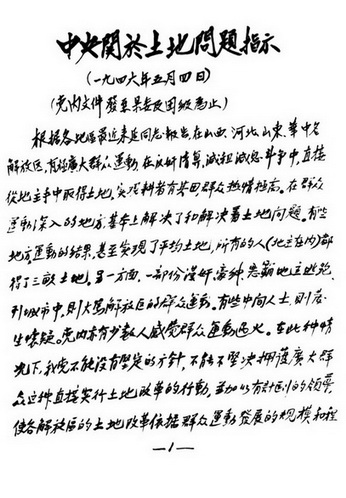 中央關於土地問題指示
(一九四六年五月四日)
(党内文件 發至县委及团级为止)
根据各地區最近来延同志報告,在山西、河北、山東、華中各
解放区,有極廣大群众運動,在反奸清算,減租減息斗争中,直接
從地主手中取得土地,实现耕者有其田,群众热情極高。在群众
運動深入的地方,基本上解决了和解决着土地问题。有些
地方運動的结果,甚至实现了平均土地,所有的人(地主在内)都
得了三畝土地。另一方面,一部份漢奸、豪绅、恶霸地主逃跑
到城市中,則大罵解放区的群众運動。有些中间人士,則發
生怀疑。党内亦有少數人感觉群众運動过火。在此种情
况下,我党不能没有堅定的方针,不能不堅决拥護廣大群
众这种直接实行土地改革的行動,並加以有計劃的领導,
使各解放区的土地改革依据群众運動發展的规模和程
—1—